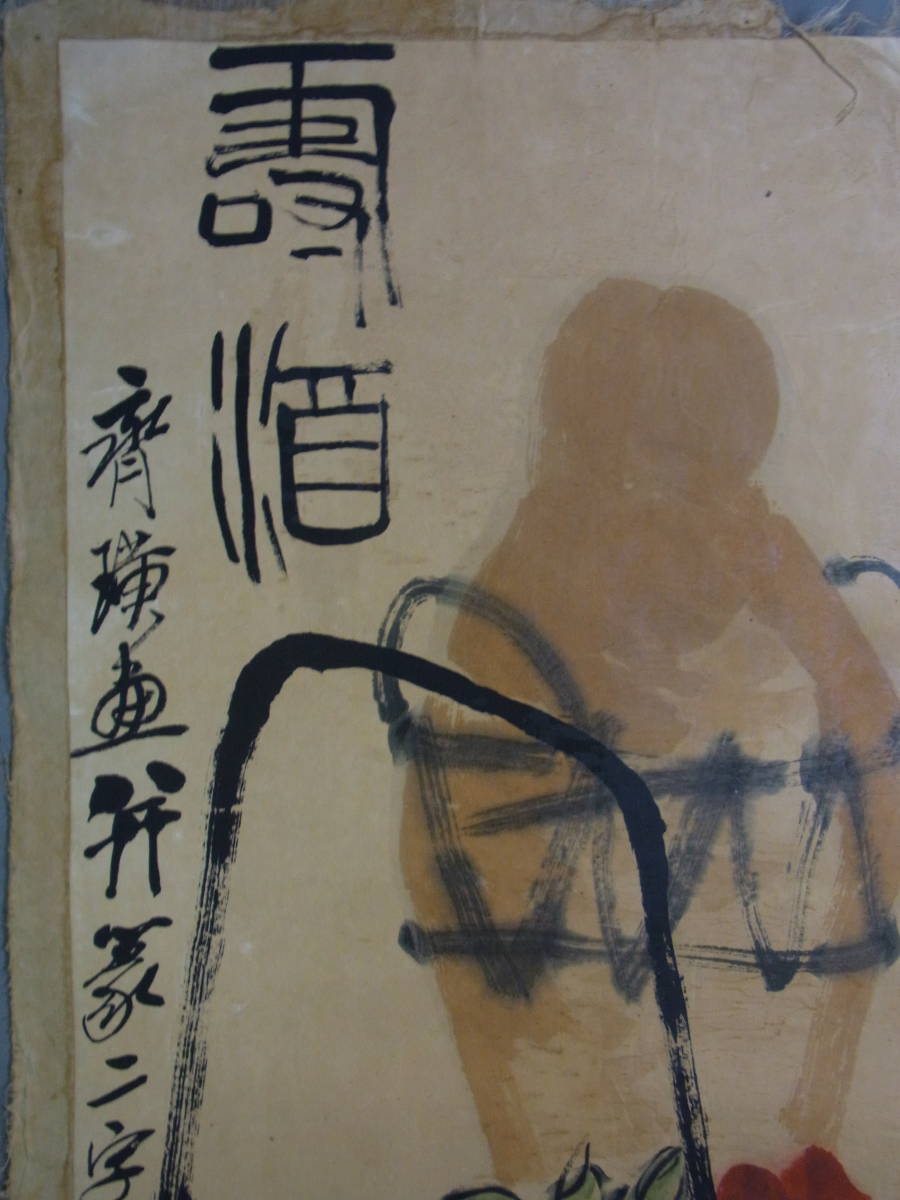 壽酒
齊璜畫并篆二字